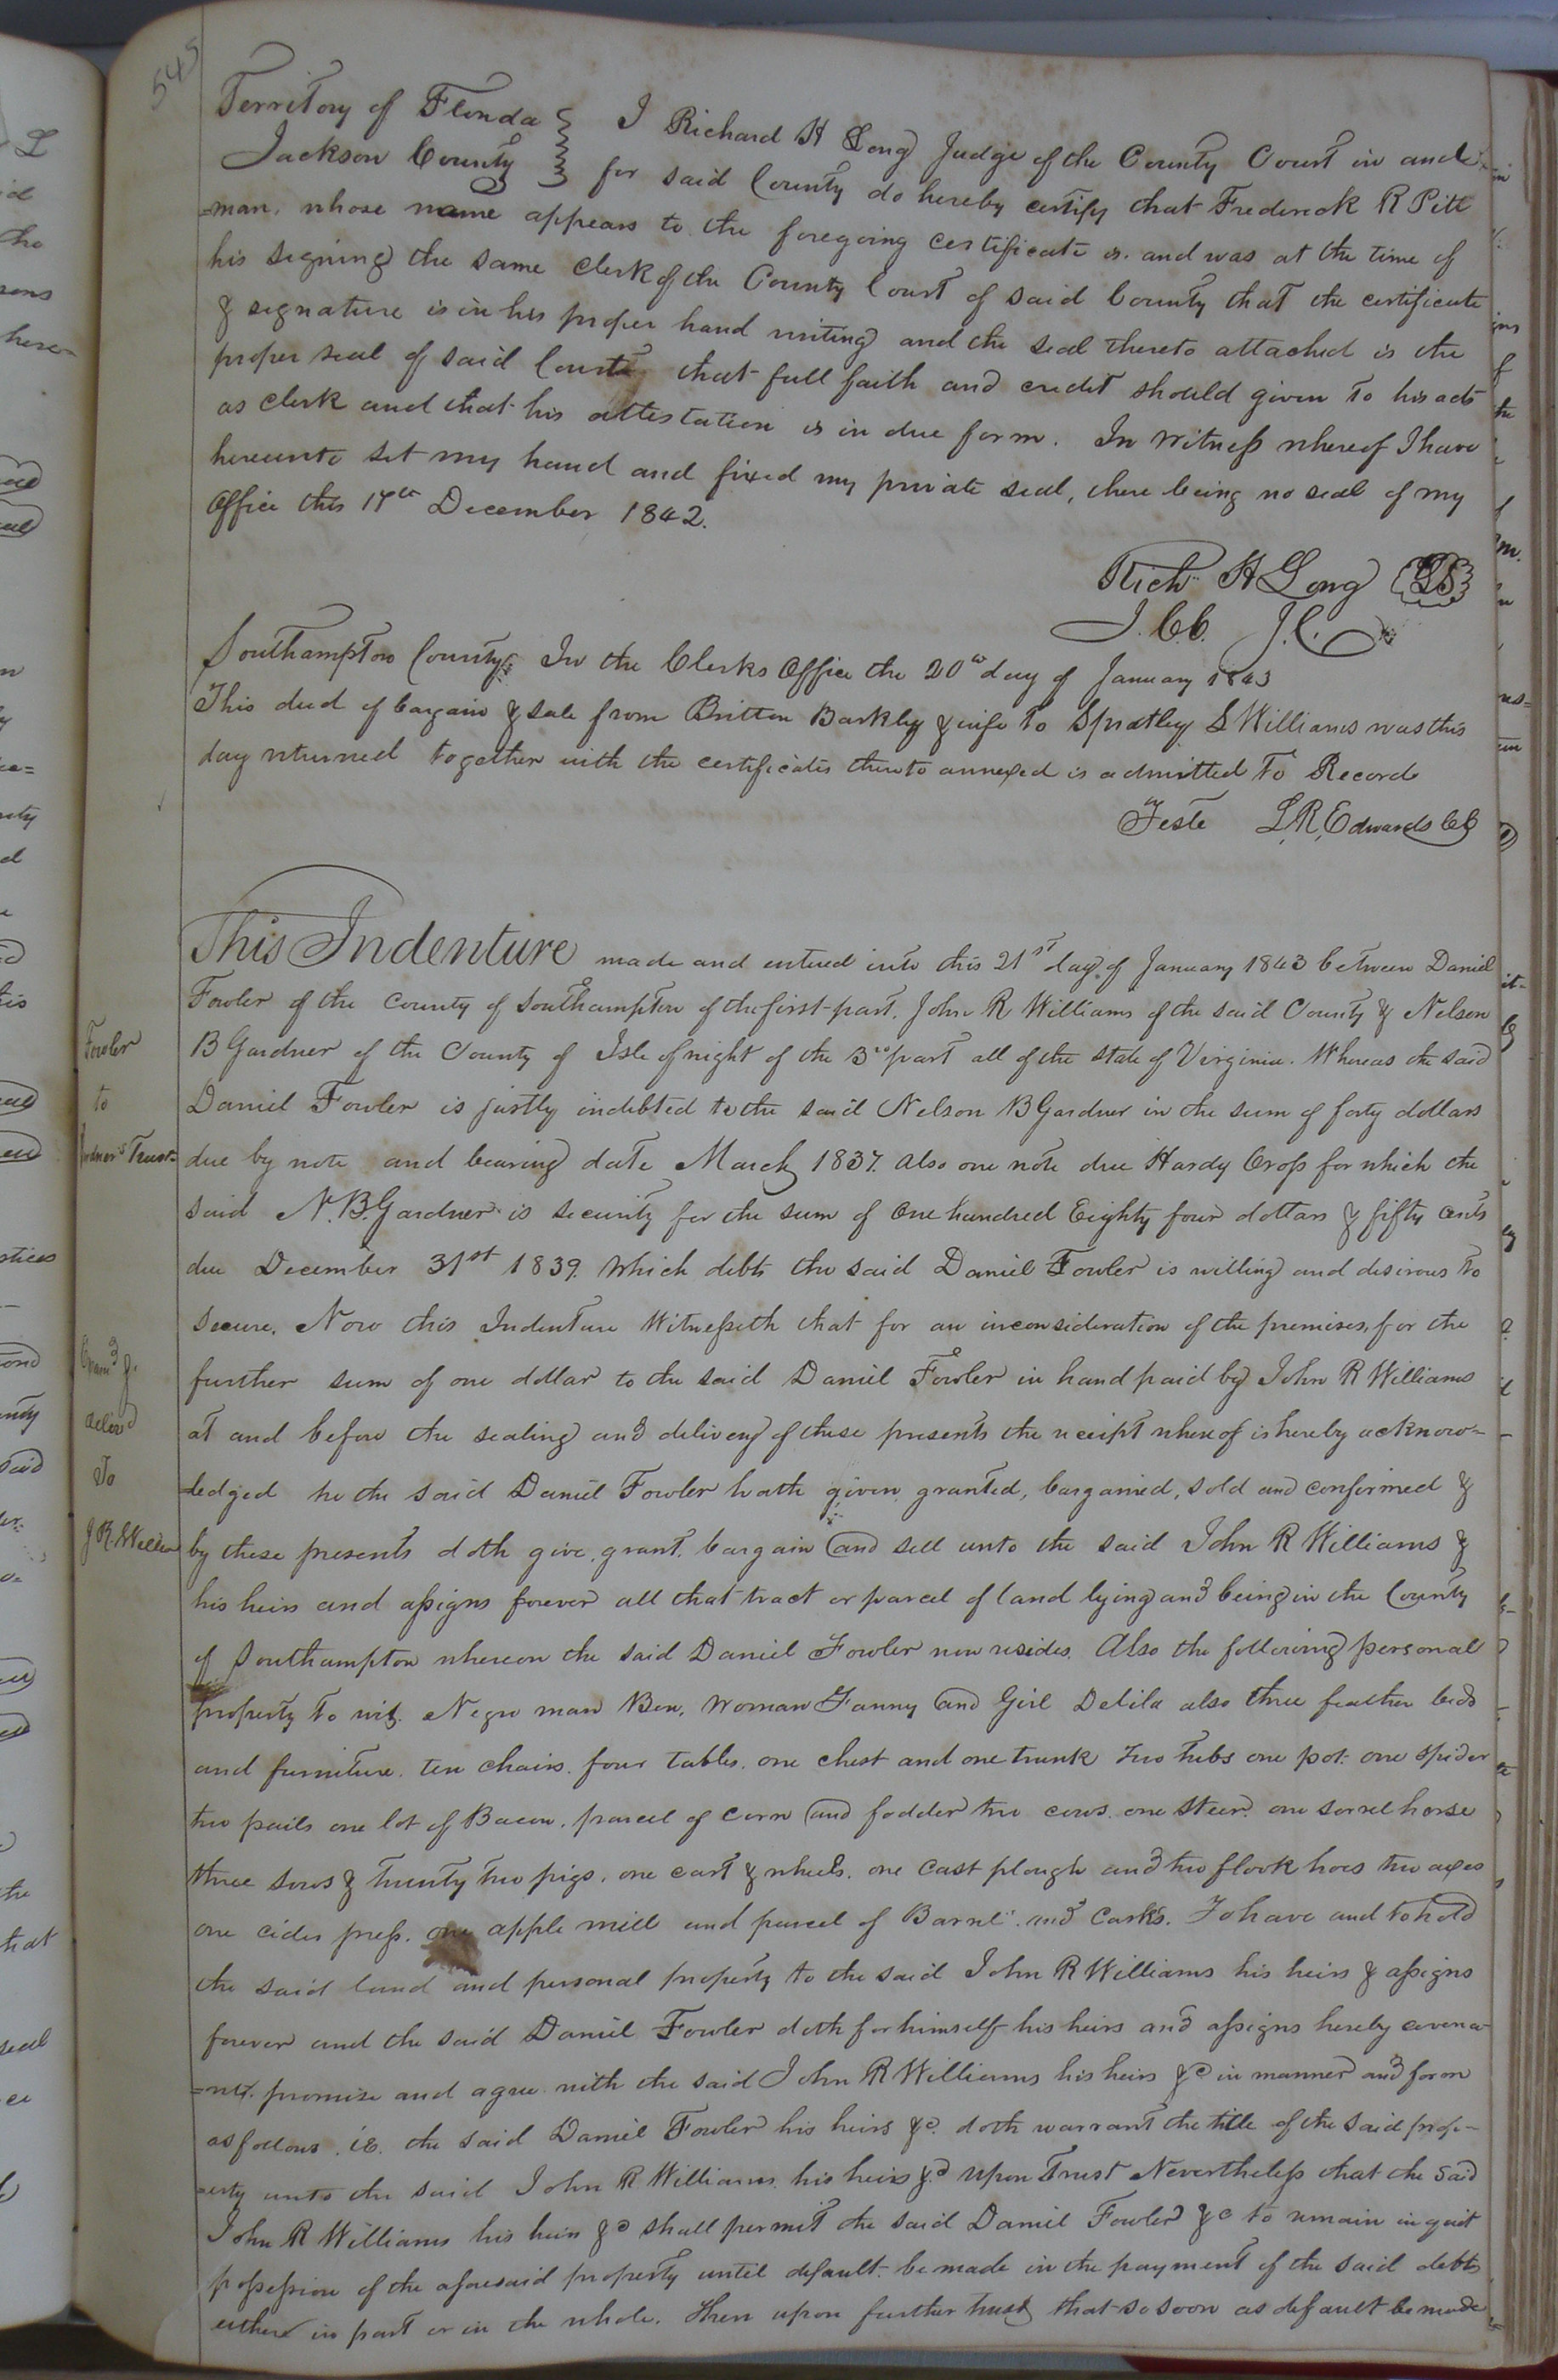 545
Territory of Florida } I Richard H Long Judge of the County Court in and
Jackson County } for said County do hereby certify that Frederick R Pitt
=man, whose name appears to the foregoing certificate is and was at the time of
his signing the same Clerk of the County Court of said County that the certificate
& signature is in his proper hand writing and the seal thereto attached is the
proper seal of said Court that full faith and credit should given to his acts
as clerk and that his attestation is in due form. In Witness whereof I have
hereunto set my hand and fixed my private seal, there being no seal of my
Office this 17th December 1842.
Rich H Long LS
J.C.C. J.C.
Southampton County: In the Clerks Office the 20th day of January 1843
This deed of bargain & sale from Britton Barkley & wife to Spratley S Williams was this
day returned together with the certificates thereto annexed is admitted To Record
Teste L.R. Edwards CC
This Indenture made and entered into this 21st day of January 1843 between Daniel
Fowler of the County of Southampton of the first part, John R Williams of the said County & Nelson
B Gardner of the County of Isle of night of the 3rd part all of the state of Virginia. Whereas the said
Fowler
to
Gardner's Trust
Daniel Fowler is justly indebted to the said Nelson B Gardner in the sum of forty dollars
due by note and bearing date March 1837. Also one note due Hardy Cross for which the
said N.B. Gardner is security for the sum of One hundred Eighty four dollars & fifty cents
due December 31st 1839. Which debts the said Daniel Fowler is willing and desirous to
secure. Now this Indenture Witnesseth that for an inconsideration of the premises, for the
further sum of one dollar to the said Daniel Fowler in hand paid by John R Williams
at and before the sealing and delivery of these presents the receipt whereof is hereby acknow=
=ledged he the said Daniel Fowler hath given, granted, bargained, sold and confirmed &
Exam'd &
deliv'd
To
J R. William
by these presents doth give, grant, bargain and sell unto the said John R Williams &
his heirs and assigns forever all that tract or parcel of land lying and being in the County
of Southampton whereon the said Daniel Fowler now resides. Also the following personal
property to wit. Negro man Ben, Woman Fanny and Girl Delila also three feather beds
and furniture, ten chairs, four tables, one chest and one trunk two tubs one pot one spider
two pails one lot of Bacon, parcel of corn and fodder two cows one steer, one sorrel horse
three sows & twenty two pigs, one cart & wheels, one Cast plough and two flook hoes two axes
one cider press, one apple mill and parcel of Barrels and Casks. To have and to hold
the said land and personal property to the said John R Williams his heirs & assigns
forever and the said Daniel Fowler doth for himself his heirs and assigns hereby covena=
=nt, promise and agree with the said John R Williams his heirs &c in manner and form
as follows, ie. the said Daniel Fowler his heirs &c. doth warrant the title of the said prop=
=erty unto the said John R Williams his heirs &c upon Trust Nevertheless that the said
John R Williams his heirs &c shall permit the said Daniel Fowler &c to remain in quiet
possession of the aforesaid property until default be made in the payment of the said debts
either in part or in the whole. Then upon further trust that so soon as default be made